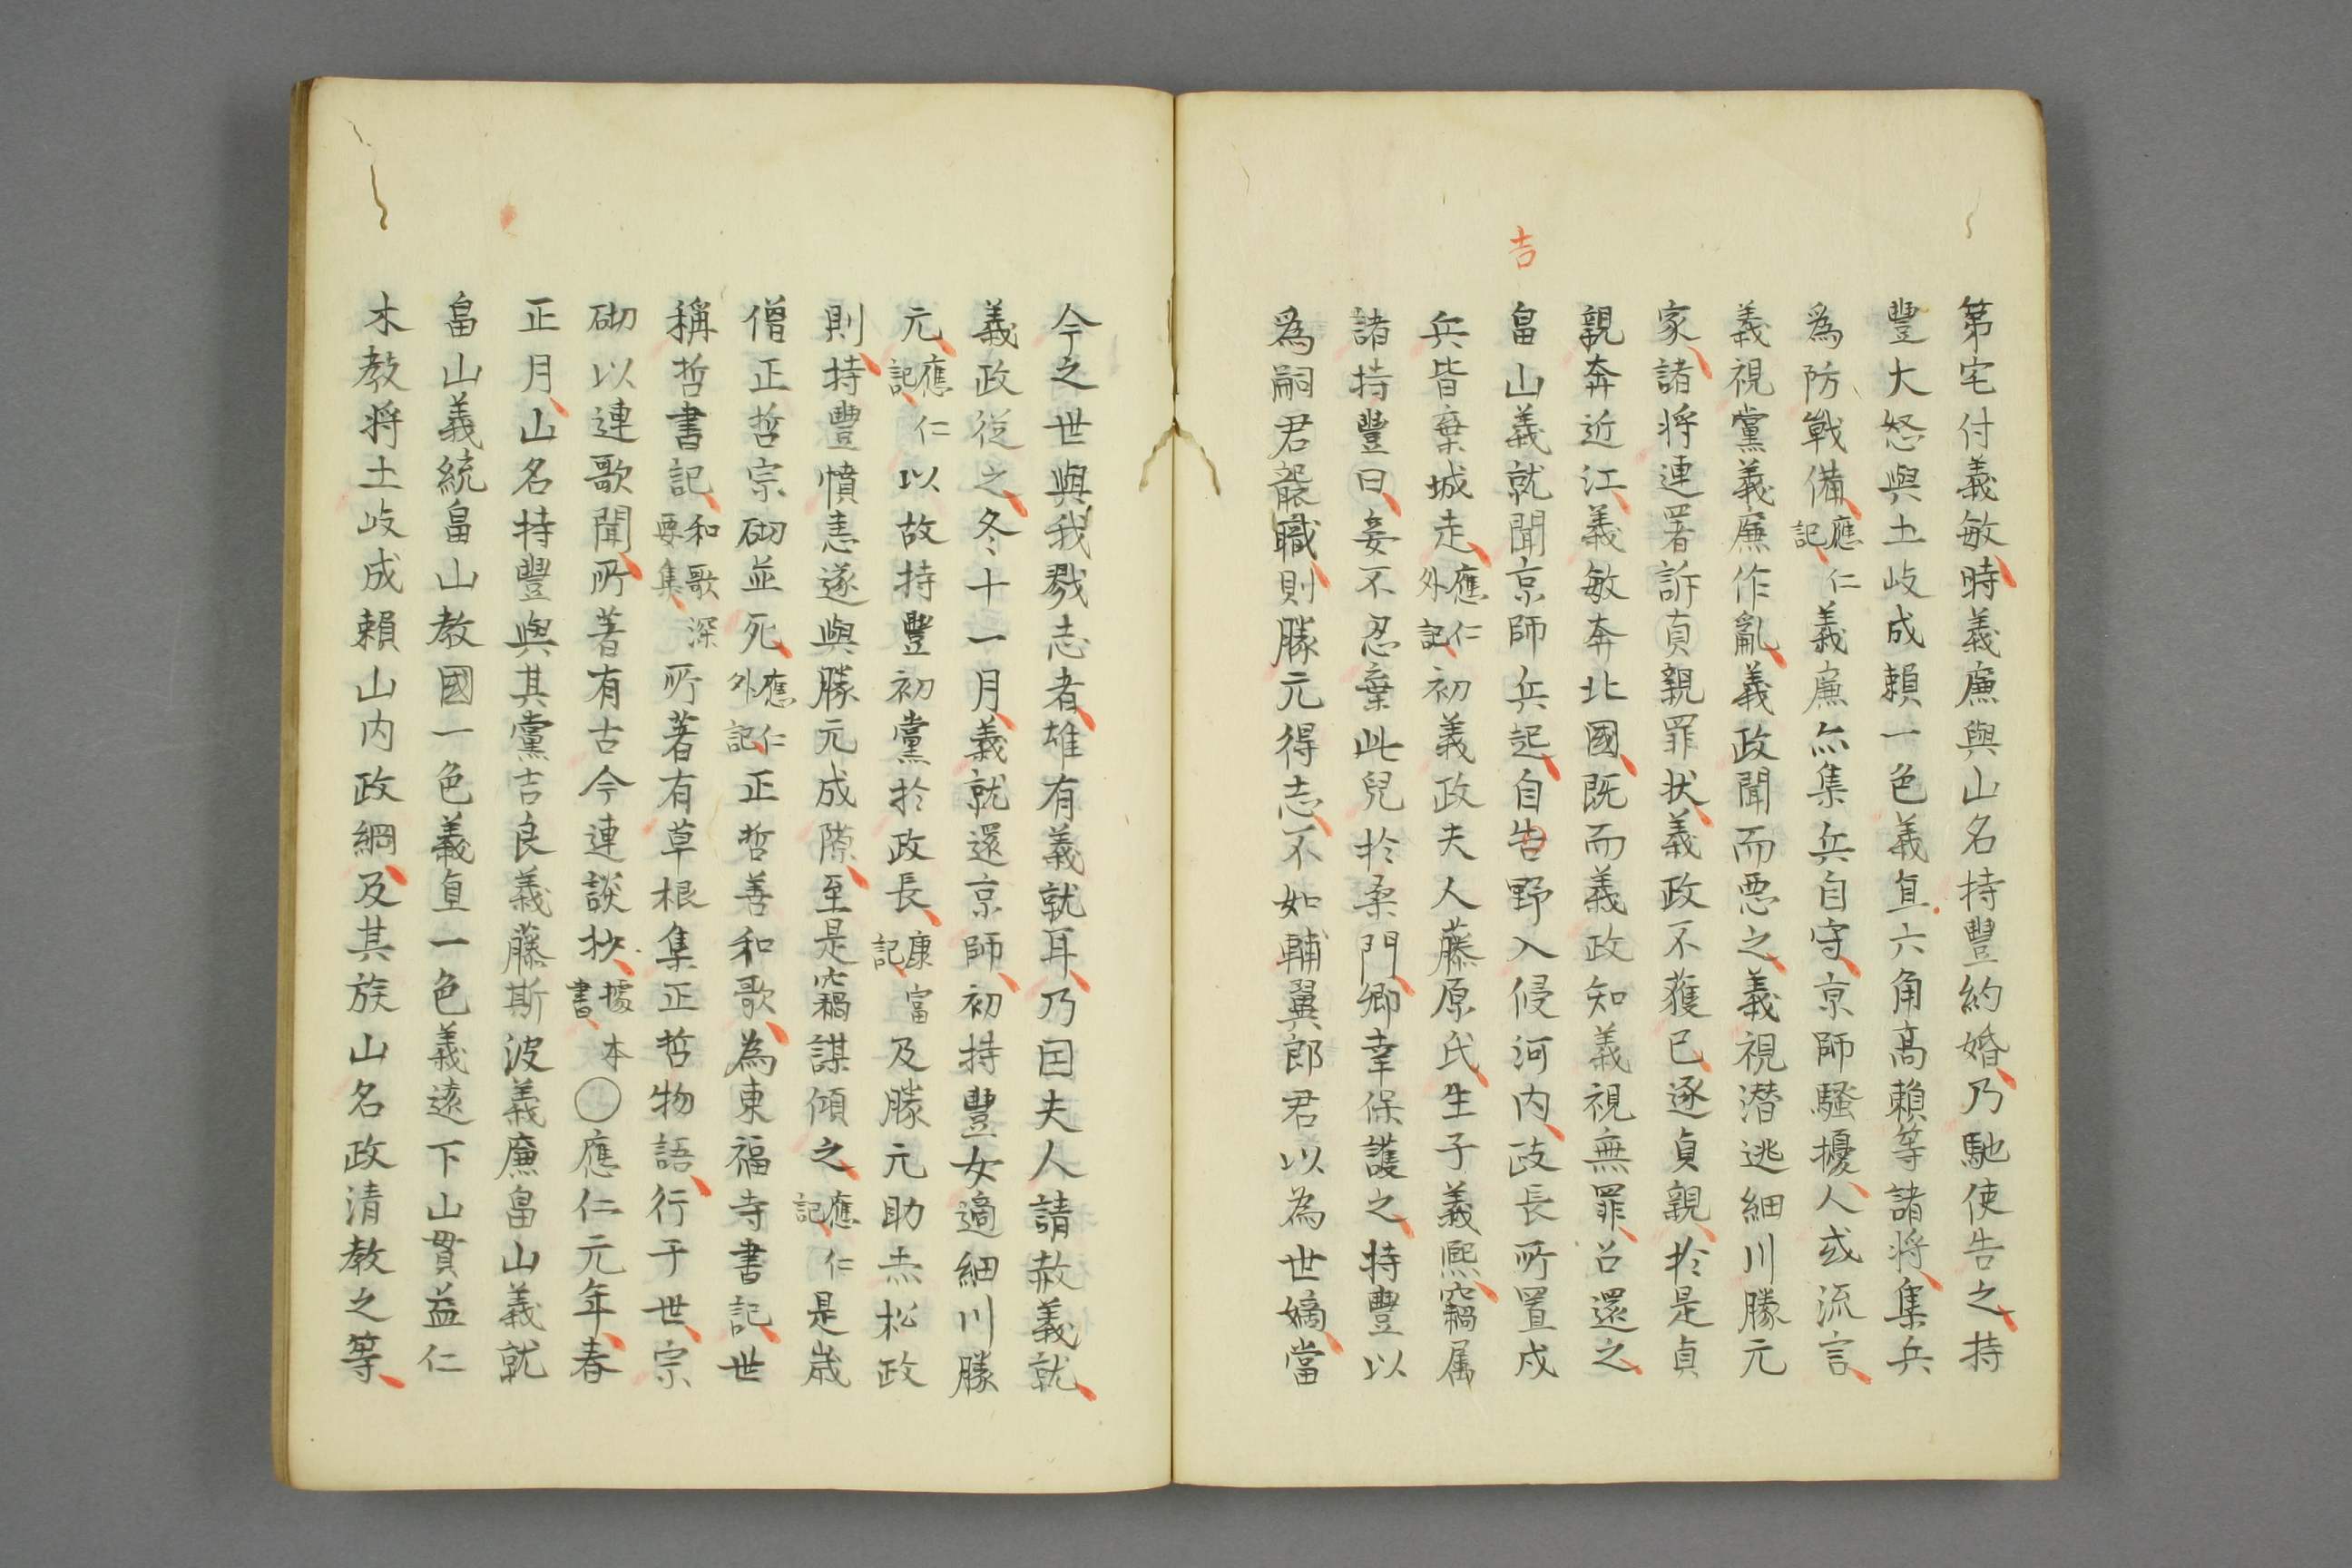 第宅付義敏時義廉與山名持豐約婚乃馳使告之持
豐大怒與土岐成賴一色義直六角高賴等諸將集兵
為防戰備應仁記義廉亦集兵自守京師騷擾人或流言
義視黨義廉作亂義政聞而惡之義視潜逃細川勝元
家諸将連署訴貞親罪状義政不獲已逐貞親於是貞
親奔近江義敏奔北國既而義政知義視無罪召還之
吉
畠山義就聞京師兵起自告野入侵河内政長所置戍
兵皆棄城走應仁外記初義政夫人藤原氏生子義熙竊属
諸持豐曰妾不忍棄此兒於桑門卿幸保護之持豐以
為嗣君襲職則勝元得志不如輔翼郎君以為世嫡當
今之世與我戮志者雄有義就耳乃因夫人請赦義就
義政從之冬十一月義就還京師初持豐女適細川勝
元應仁記以故持豐初黨於政長康富記及勝元助赤松政
則持豐憤恚遂與勝元成隙至是竊謀傾之應仁記是歳
僧正哲宗砌並死應仁外記正哲善和歌為東福寺書記世
稱哲書記和歌深要集所著有草根集正哲物語行于世宗
砌以連歌聞所著有古今連談抄據本書〇應仁元年春
正月山名持豐與其黨吉良義藤斯波義廉畠山義就
畠山義統畠山教國一色義直一色義遠下山貫益仁
木教将土岐成賴山内政綱及其族山名政清教之等